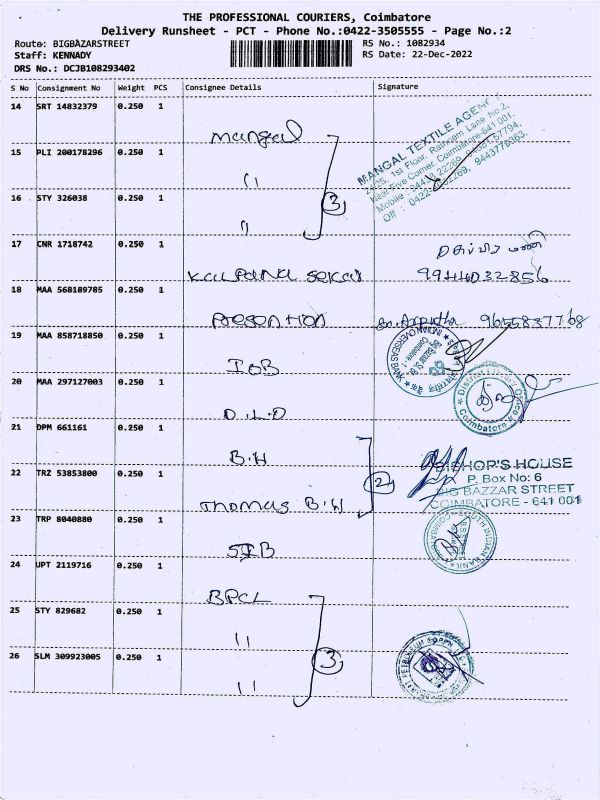 THE PROFESSIONAL COURIERS, Coimbatore
Delivery Runsheet - PCT - Phone No.:0422-3505555 - Page No.:2
Route: BIGBAZARSTREET
RS No.: 1082934
Staff: KENNADY
RS Date: 22-Dec-2022
DRS No.: DCJB108293402
S No Consignment No Weight PCS Consignee Details Signature
14 SRT 14832379 0.250 1 Mangal
MANGAL TEXTILE AGENCY
1st Floor, Rathnam Lane No.2,
Near Five Corner, Coimbatore-641 001.
Mobile :
Off : 9443776363.
15 PLI 200178296 0.250 1 "
16 STY 326038 0.250 1 "
3
17 CNR 1718742 0.250 1 Kalpana Sekar
9944032856
18 MAA 568189785 0.250 1 Presention 9655837768
19 MAA 858718850 0.250 1 IOB
INDIAN OVERSEAS BANK
20 MAA 297127003 0.250 1 D.L.O
Coimbatore
21 DPM 661161 0.250 1 B.H
2
BISHOP'S HOUSE
P. Box No: 6
BIG BAZZAR STREET
COIMBATORE - 641 001
22 TRZ 53853800 0.250 1 Thomas B.H
23 TRP 8040880 0.250 1 SIB
SOUTH INDIAN BANK
COIMBATORE
24 UPT 2119716 0.250 1 BPCL
25 STY 829682 0.250 1 "
26 SLM 309923005 0.250 1 "
3
PETROLEUM